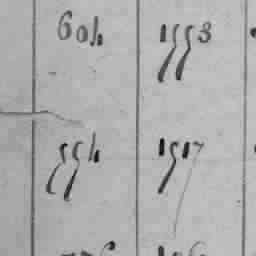 604 1553
554 1517